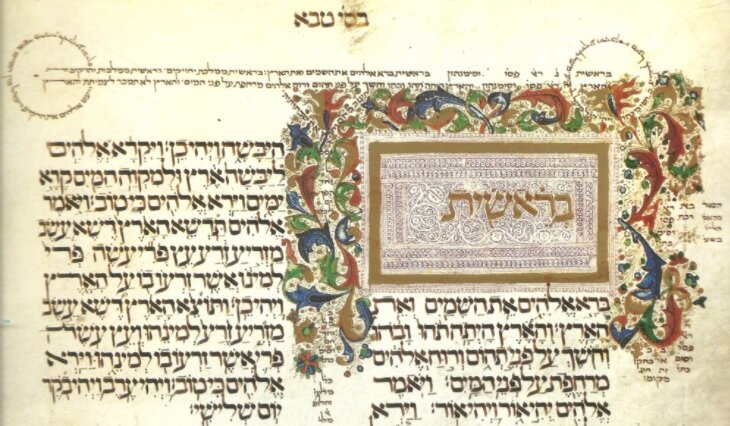 בסי׳ טבא
בראשית ברא אלהים את השמים ואת הארץ בראשית ממלכת יהויקים
בראשית
ברא אלהים את השמים ואת
הארץ׃ והארץ היתה תהו ובהו
וחשך על פני תהום ורוח אלהים
מרחפת על פני המים׃ ויאמר
אלהים יהי אור ויהי אור׃ וירא
היבשה ויהי כן׃ ויקרא אלהים
ליבשה ארץ ולמקוה המים קרא
ימים וירא אלהים כי טוב׃ ויאמר
אלהים תדשא הארץ דשא עשב
מזריע זרע עץ פרי עשה פרי
למינו אשר זרעו בו על הארץ
ויהי כן׃ ותוצא הארץ דשא עשב
מזריע זרע למינהו ועץ עשה
פרי אשר זרעו בו למינהו וירא
אלהים כי טוב׃ ויהי ערב ויהי בקר
יום שלישי׃